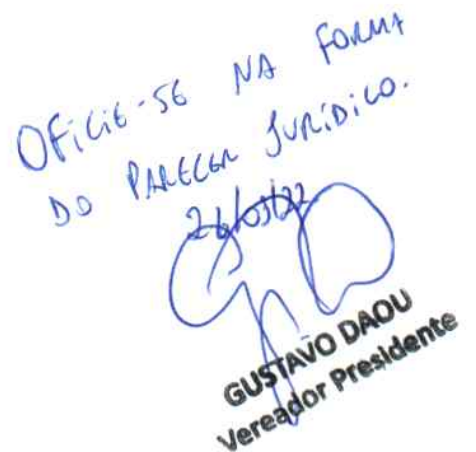 OFICIE-SE NA FORMA
DO PARECER JURÍDICO.
GUSTAVO DAOU
Vereador Presidente